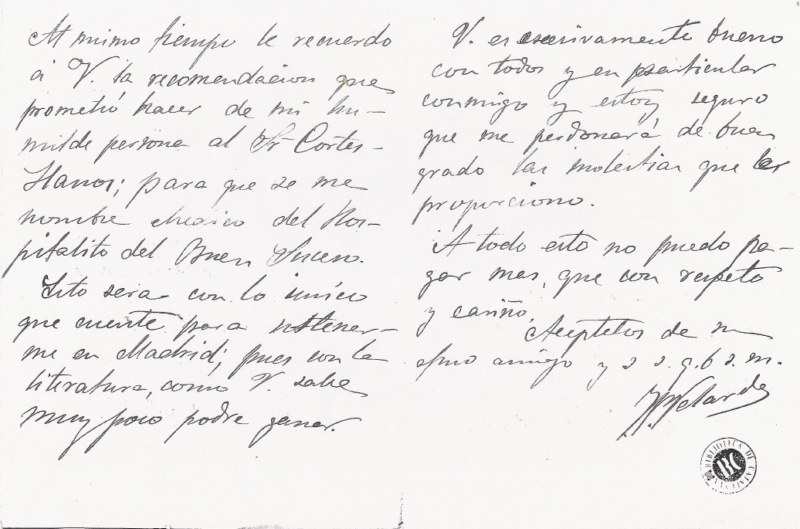 Al mismo tiempo le recuerdo
á V. la recomendacion que
prometió hacer de mi hu-
milde persona al Sr Cortes-
Llanos; para que se me
nombre medico del Hos-
pitalito del Buen Suceso.
Esto sera con lo unico
que cuente para sostener-
me en Madrid; pues con la
literatura, como V. sabe
muy poco podre ganar.
V. es excesivamente bueno
con todos y en particular
conmigo y estoy seguro
que me perdonará de buen
grado las molestias que le
proporciono.
A todo esto no puedo pa-
gar mas, que con respeto
y cariño.
Aceptelos de su
afmo amigo y s. s. q. b. s. m.
Velarde
BIBLIOTECA DE CATALUNYA
BC